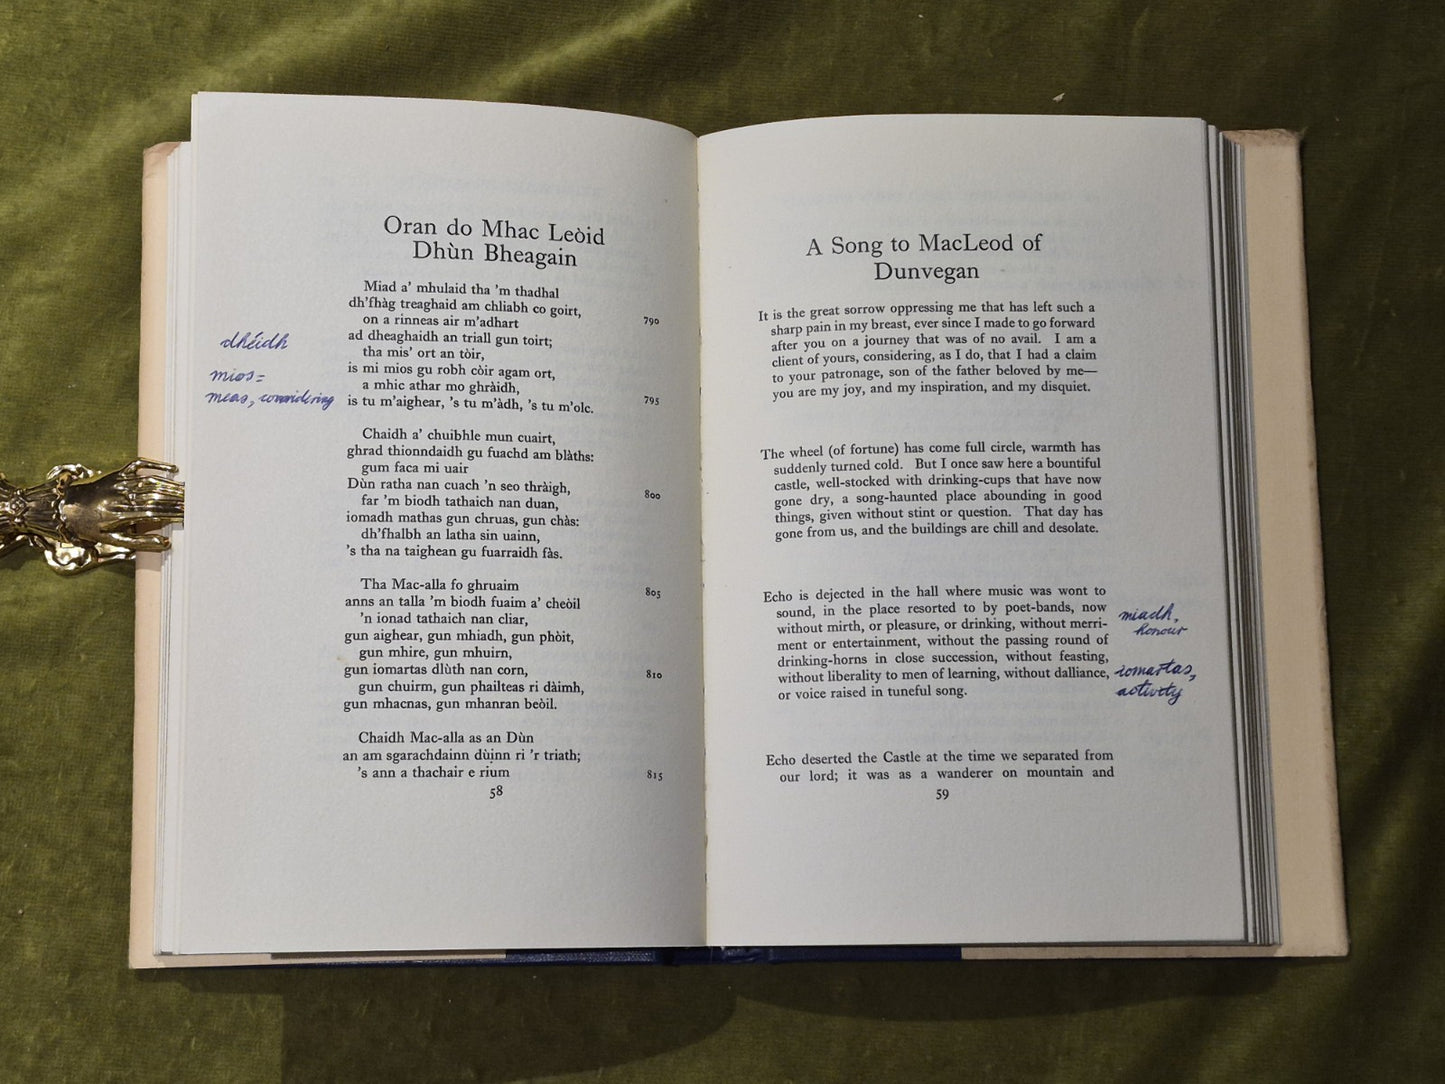 Oran do Mhac Leòid
Dhùn Bheagain
Miad a' mhulaid tha 'm thadhal
dh'fhàg treaghaid am chliabh co goirt,
on a rinneas air m'adhart 790
ad dheaghaidh an triall gun toirt;
tha mis' ort an tòir,
is mi mios gu robh còir agam ort,
a mhic athar mo ghràidh,
is tu m'aighear, 's tu m'àdh, 's tu m'olc. 795
dhéidh
mios=
meas, considering
Chaidh a' chuibhle mun cuairt,
ghrad thionndaidh gu fuachd am blàths:
gum faca mi uair
Dùn ratha nan cuach 'n seo thràigh, 800
far 'm biodh tathaich nan duan,
iomadh mathas gun chruas, gun chàs:
dh'fhalbh an latha sin uainn,
's tha na taighean gu fuarraidh fàs.
Tha Mac-alla fo ghruaim 805
anns an talla 'm biodh fuaim a' cheòil
'n ionad tathaich nan cliar,
gun aighear, gun mhiadh, gun phòit,
gun mhire, gun mhuirn,
gun iomartas dlùth nan corn, 810
gun chuirm, gun phailteas ri dàimh,
gun mhacnas, gun mhanran beòil.
Chaidh Mac-alla as an Dùn
an am sgarachdainn dùinn ri 'r triath;
's ann a thachair e rium 815
58
A Song to MacLeod of
Dunvegan
It is the great sorrow oppressing me that has left such a
sharp pain in my breast, ever since I made to go forward
after you on a journey that was of no avail. I am a
client of yours, considering, as I do, that I had a claim
to your patronage, son of the father beloved by me—
you are my joy, and my inspiration, and my disquiet.
The wheel (of fortune) has come full circle, warmth has
suddenly turned cold. But I once saw here a bountiful
castle, well-stocked with drinking-cups that have now
gone dry, a song-haunted place abounding in good
things, given without stint or question. That day has
gone from us, and the buildings are chill and desolate.
Echo is dejected in the hall where music was wont to
sound, in the place resorted to by poet-bands, now
without mirth, or pleasure, or drinking, without merri-
ment or entertainment, without the passing round of
drinking-horns in close succession, without feasting,
without liberality to men of learning, without dalliance,
or voice raised in tuneful song.
miadh,
honour
iomartas,
activity
Echo deserted the Castle at the time we separated from
our lord; it was as a wanderer on mountain and
59